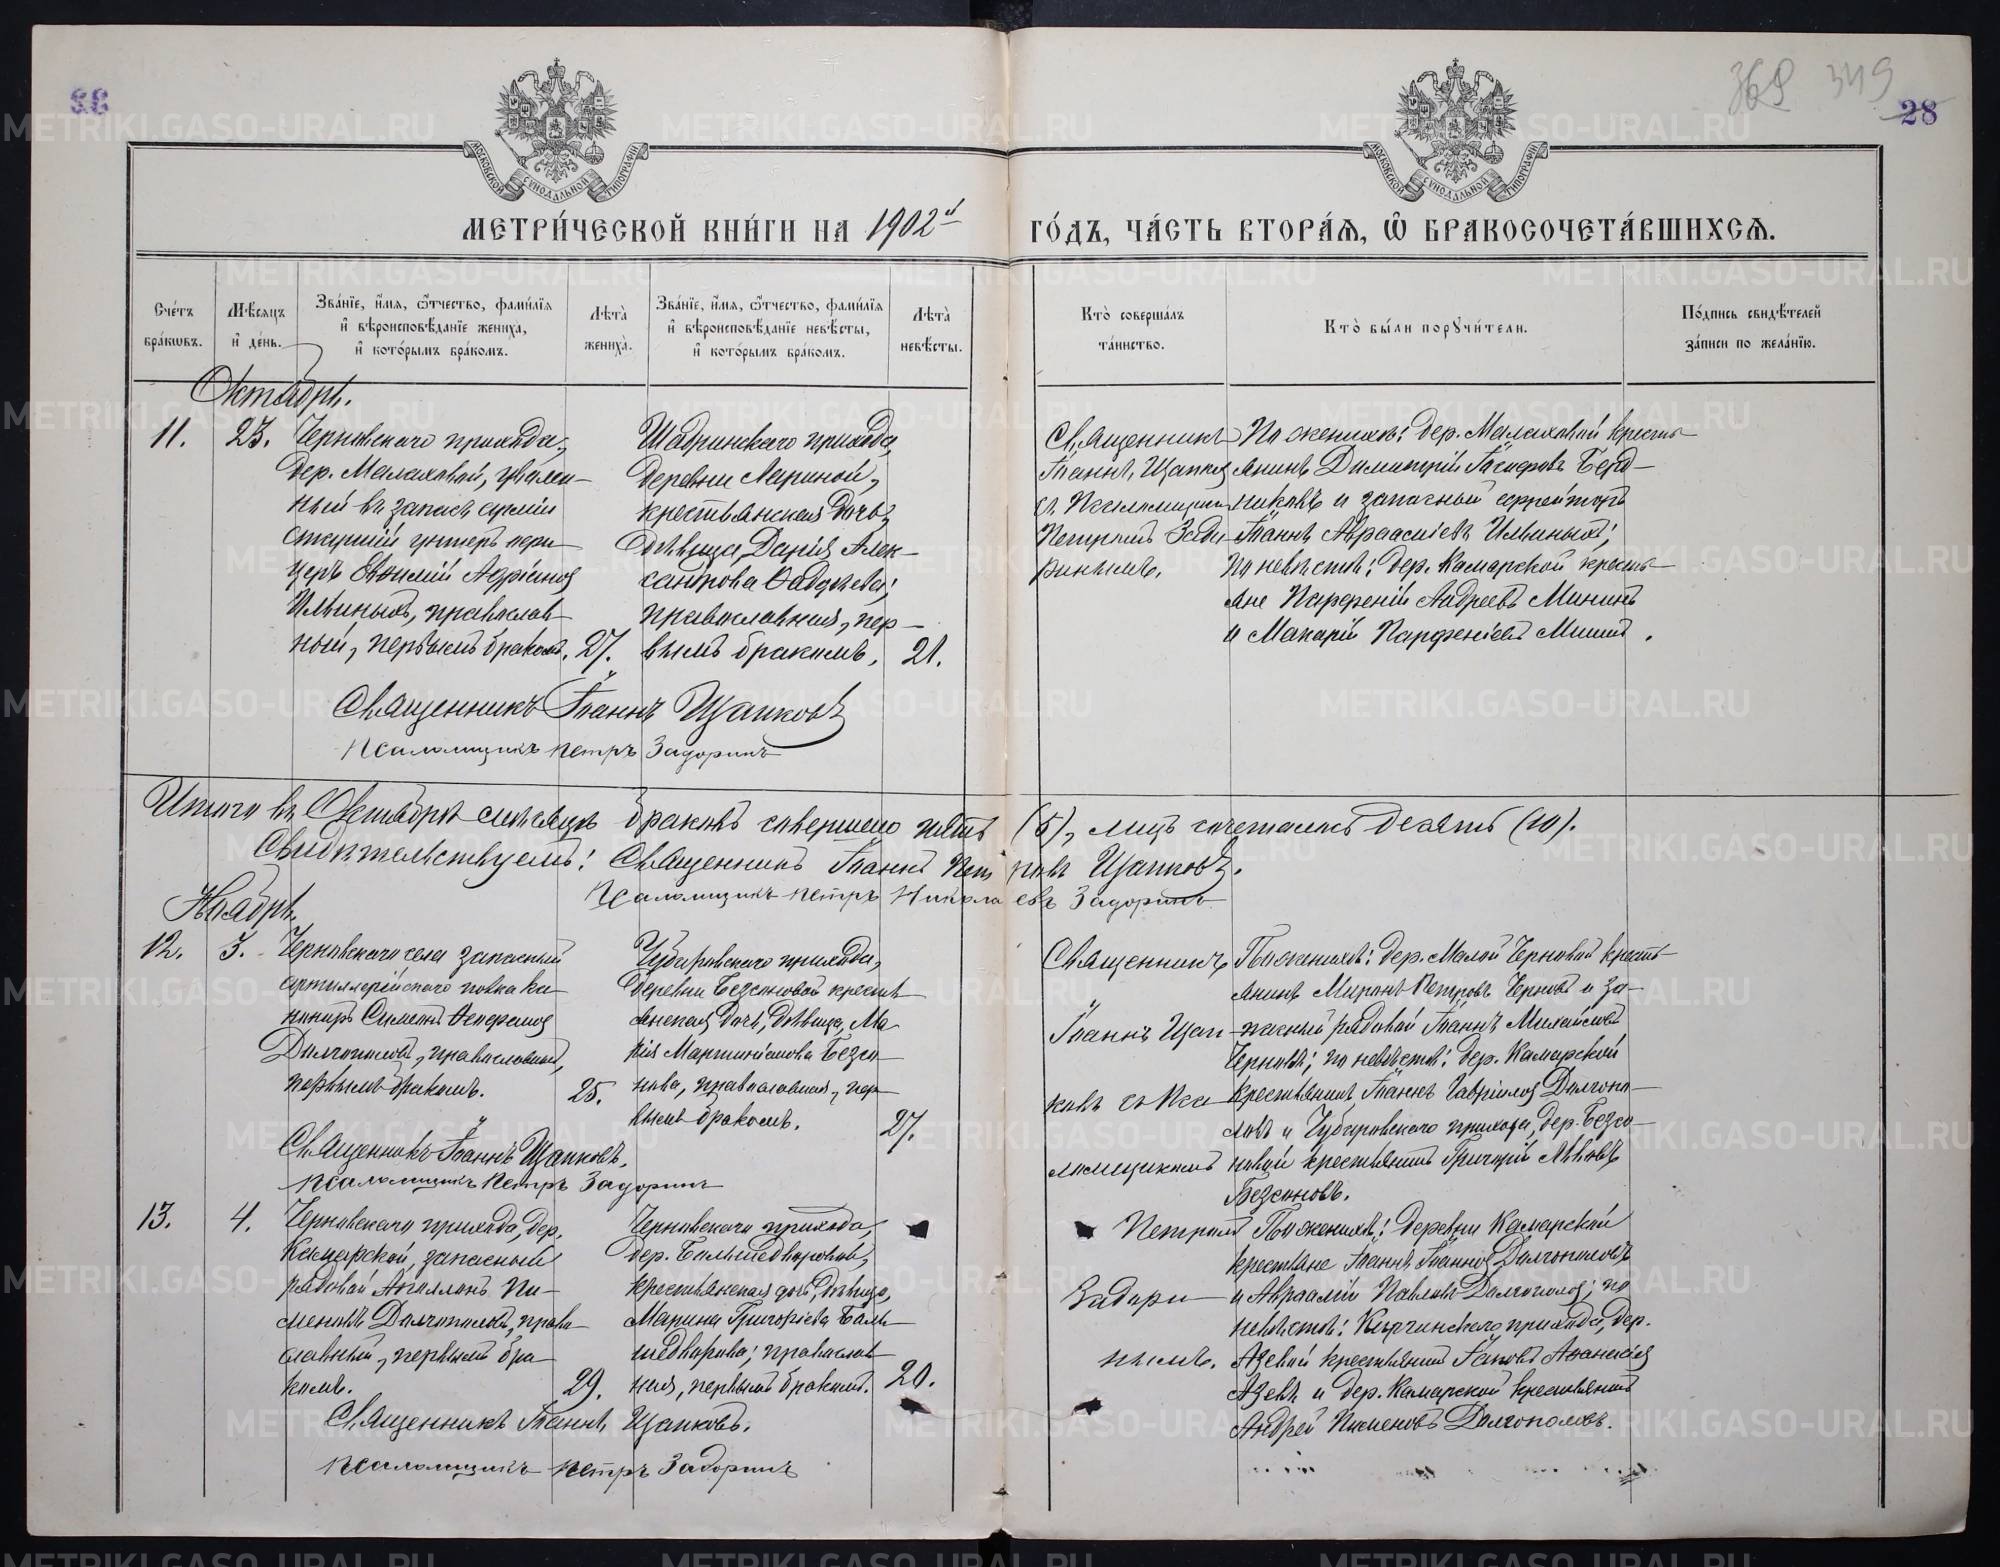 28
368 349
МОСКОВСКОЙ СѴНОДАЛЬНОЙ ТИПОГРАФІИ
МОСКОВСКОЙ СѴНОДАЛЬНОЙ ТИПОГРАФІИ
МЕТРИ́ЧЕСКОЙ КНИ́ГИ НА 1902й ГО́ДЪ, ЧА́СТЬ ВТОРА́Ѧ, Ѡ҆ БРАКОСОЧЕТА́ВШИХСѦ.
Сче́тъ бра́кѡвъ.
Мѣ́сѧцъ и҆ де́нь.
Зва́нїе, и҆́мѧ, ѻ҆́тчество, фами́лїѧ и҆ вѣроисповѣ́данїе жениха̀, и҆ кото́рымъ бра́комъ.
Лѣ́та̀ жениха̀.
Зва́нїе, и҆́мѧ, ѻ҆́тчество, фами́лїѧ и҆ вѣроисповѣ́данїе невѣ́сты, и҆ кото́рымъ бра́комъ.
Лѣ́та̀ невѣ́сты.
Кто̀ соверша́лъ та́инство.
Кто̀ бы́ли порꙋчи́тели.
По́дпись свидѣ́телей за́писи по жела́нїю.
Октябрь.
11.
23.
Черновскаго прихода,
дер. Малаховой, уволен-
ный въ запасъ арміи
старшій унтеръ офи-
церъ Адріановъ
Ильиныхъ, православ-
ный, первымъ бракомъ.
27.
Шадринскаго прихода,
деревни Лариной,
крестьянская дочь,
дѣвица, Дарія Алек-
сандрова Авдѣева;
православная, пер-
вымъ бракомъ.
21.
Священникъ
Іоаннъ Щапковъ
съ Псаломщикомъ
Петромъ Задо-
ринымъ.
По женихѣ: дер. Малаховой кресть-
янинъ Димитрій Берд-
никовъ и запасный ефрейторъ
Іоаннъ Авраамієвъ Ильиныхъ;
по невѣстѣ: дер. Камарской кресть-
яне Парфеній Андреевъ Мининъ
и Макарій Парфеніевъ Мининъ.
Священникъ Іоаннъ Щапковъ
Псаломщикъ Петръ Задоринъ
Итого въ Октябрѣ мѣсяцѣ браковъ совершено пять (5), лицъ сочеталось десять (10).
Свидѣтельствуемъ: Священникъ Іоаннъ Петровъ Щапковъ.
Псаломщикъ Петръ Николаевъ Задоринъ
Ноябрь.
12.
3.
Черновскаго села запасный
артиллерійскаго полка ка-
нониръ Симеонъ
Долгополовъ, православный,
первымъ бракомъ.
25.
Чубаровскаго прихода,
деревни Безсоновой кресть-
янская дочь, дѣвица, Ма-
рія Мартиніанова Безсо-
нова, православная, пер-
вымъ бракомъ.
27.
Священникъ
Іоаннъ Щап-
ковъ съ Пса-
ломщикомъ
По женихѣ: дер. Малой Черновой кресть-
янинъ Миронъ Петровъ Черновъ и за-
пасный рядовой Іоаннъ Михайловъ
Черновъ; по невѣстѣ: дер. Камарской
крестьянинъ Іоаннъ Гавріиловъ Долгопо-
ловъ и Чубаровскаго прихода, дер. Безсо-
новой крестьянинъ Григорій Львовъ
Безсоновъ.
Священникъ Іоаннъ Щапковъ.
Псаломщикъ Петръ Задоринъ
13.
4.
Черновскаго прихода, дер.
Камарской, запасный
рядовой Аполлонъ Пи-
меновъ Долгополовъ, право-
славный, первымъ бра-
комъ.
29.
Черновскаго прихода,
дер. Большедворовой,
крестьянская дочь, дѣвица,
Марина Григоріева Боль-
шедворова; православ-
ная, первымъ бракомъ.
20.
Петромъ
Задори-
нымъ.
По женихѣ: деревни Камарской
крестьяне Іоаннъ Іоанновъ Долгополовъ
и Авраамій Павловъ Долгополовъ; по
невѣстѣ: Киргинскаго прихода, дер.
Азевой крестьянинъ Іаковъ Аѳанасіевъ
Азевъ и дер. Камарской крестьянинъ
Андрей Пименовъ Долгополовъ.
Священникъ Іоаннъ Щапковъ.
Псаломщикъ Петръ Задоринъ
METRIKI.GASO-URAL.RU